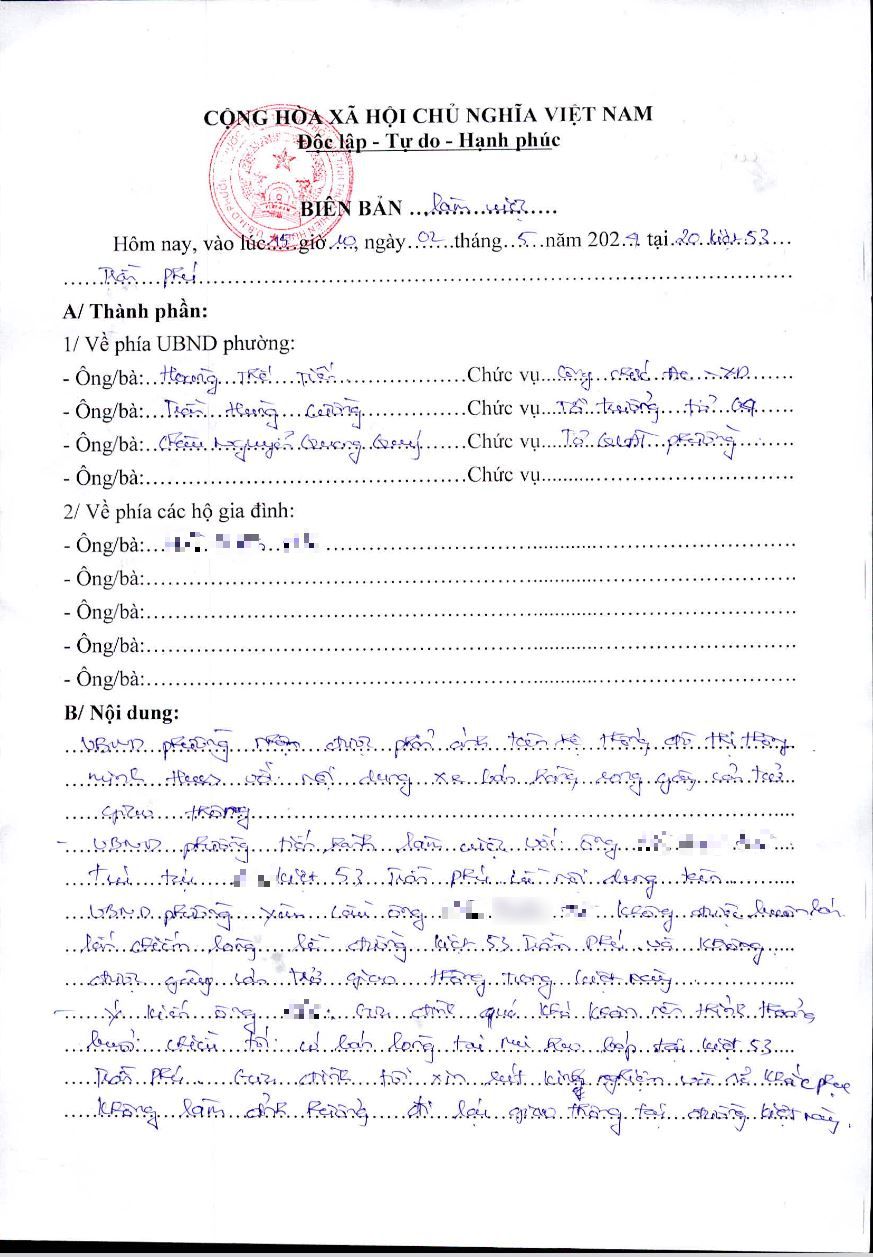 CỘNG HÒA XÃ HỘI CHỦ NGHĨA VIỆT NAM
Độc lập - Tự do - Hạnh phúc
BIÊN BẢN ...làm việc...
Hôm nay, vào lúc 15 giờ 10, ngày 02 tháng 5 năm 2024 tại 20 kiệt 53
Trần Phú
A/ Thành phần:
1/ Về phía UBND phường:
- Ông/bà: Hoàng Thế Tiến Chức vụ Công chức ĐC - XD
- Ông/bà: Trần Hưng Cường Chức vụ Tổ trưởng tổ
- Ông/bà: Nguyễn Quang Chức vụ Tổ QLĐT phường
- Ông/bà: Chức vụ
2/ Về phía các hộ gia đình:
- Ông/bà:
- Ông/bà:
- Ông/bà:
- Ông/bà:
- Ông/bà:
B/ Nội dung:
UBND phường nhận được phản ánh trên hệ thống đô thị thông
minh Hues với nội dung xe bán hàng rong gây cản trở
giao thông
- UBND phường tiến hành làm việc với ông
trú tại kiệt 53 Trần Phú về nội dung trên
UBND phường yêu cầu ông không được buôn bán
lấn chiếm lòng lề đường kiệt 53 Trần Phú và không
được gây cản trở giao thông trong kiệt này
- Ý kiến ông : Gia đình quá khó khăn nên thỉnh thoảng
buổi chiều tối có bán tại kiệt 53
Trần Phú. Gia đình tôi xin rút kinh nghiệm và sẽ khắc phục
không làm ảnh hưởng đi lại giao thông tại đường kiệt này.